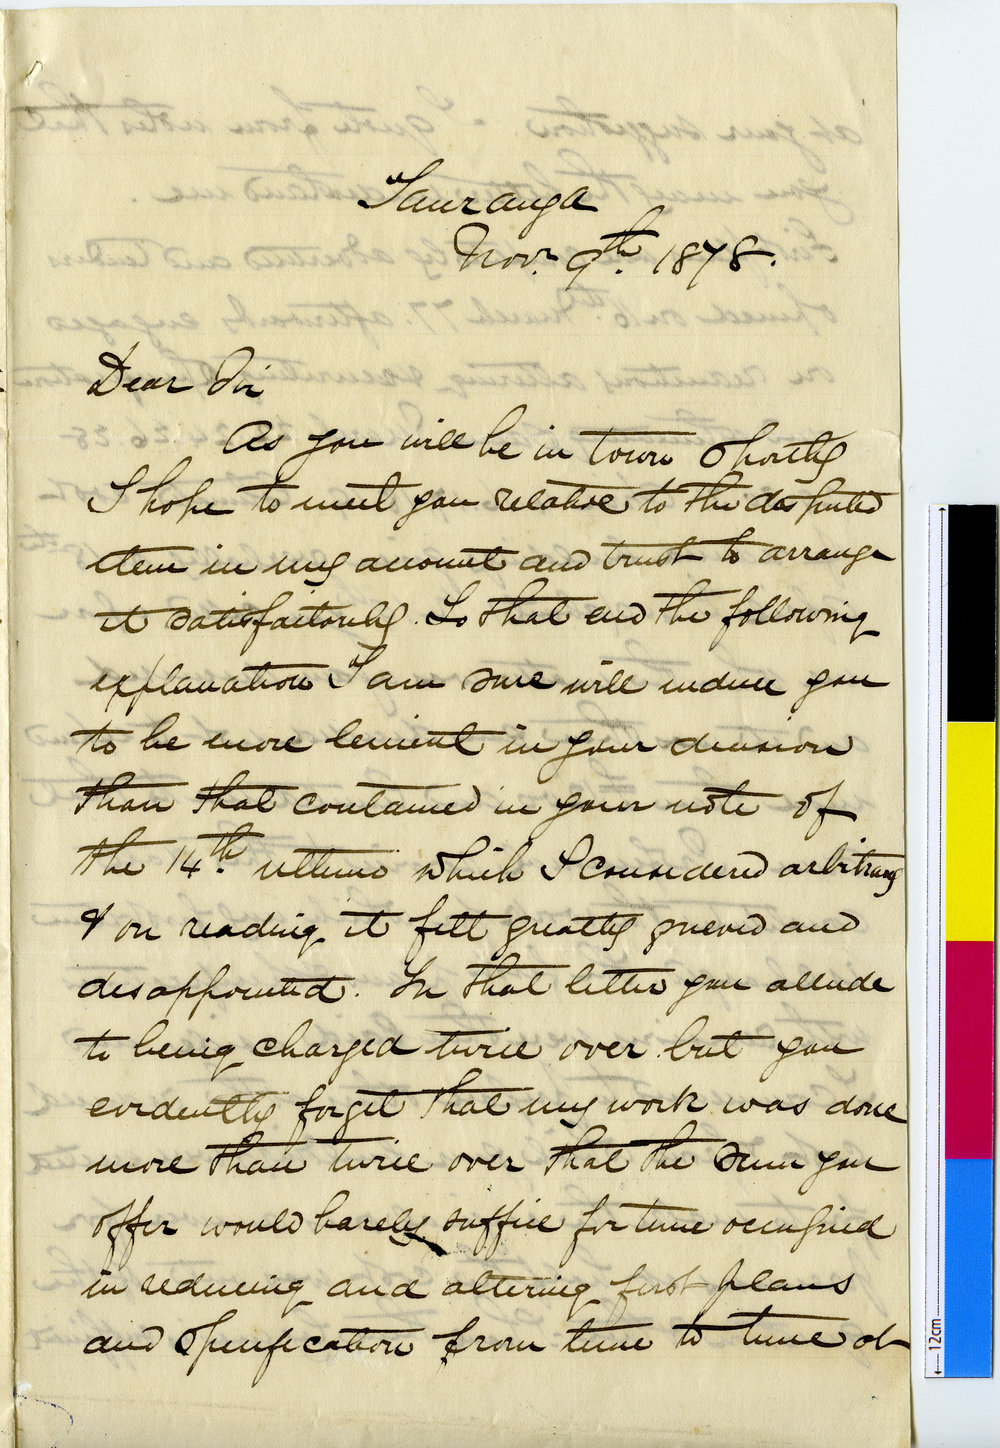 Tauranga
Novr. 9th. 1878.
Dear Sir
As you will be in town shortly
I hope to meet you relative to the disputed
item in my account and trust to arrange
it satisfactorily. To that end the following
explanation I am sure will induce you
to be more lenient in your decision
than that contained in your note of
the 14th. ultimo which I considered arbitrary
& on reading it felt greatly grieved and
disappointed. In that letter you allude
to being charged twice over but you
evidently forget that my work was done
more than twice over that the sum you
offer would barely suffice for time occupied
in reducing and altering first plans
and specification from time to time at
12cm